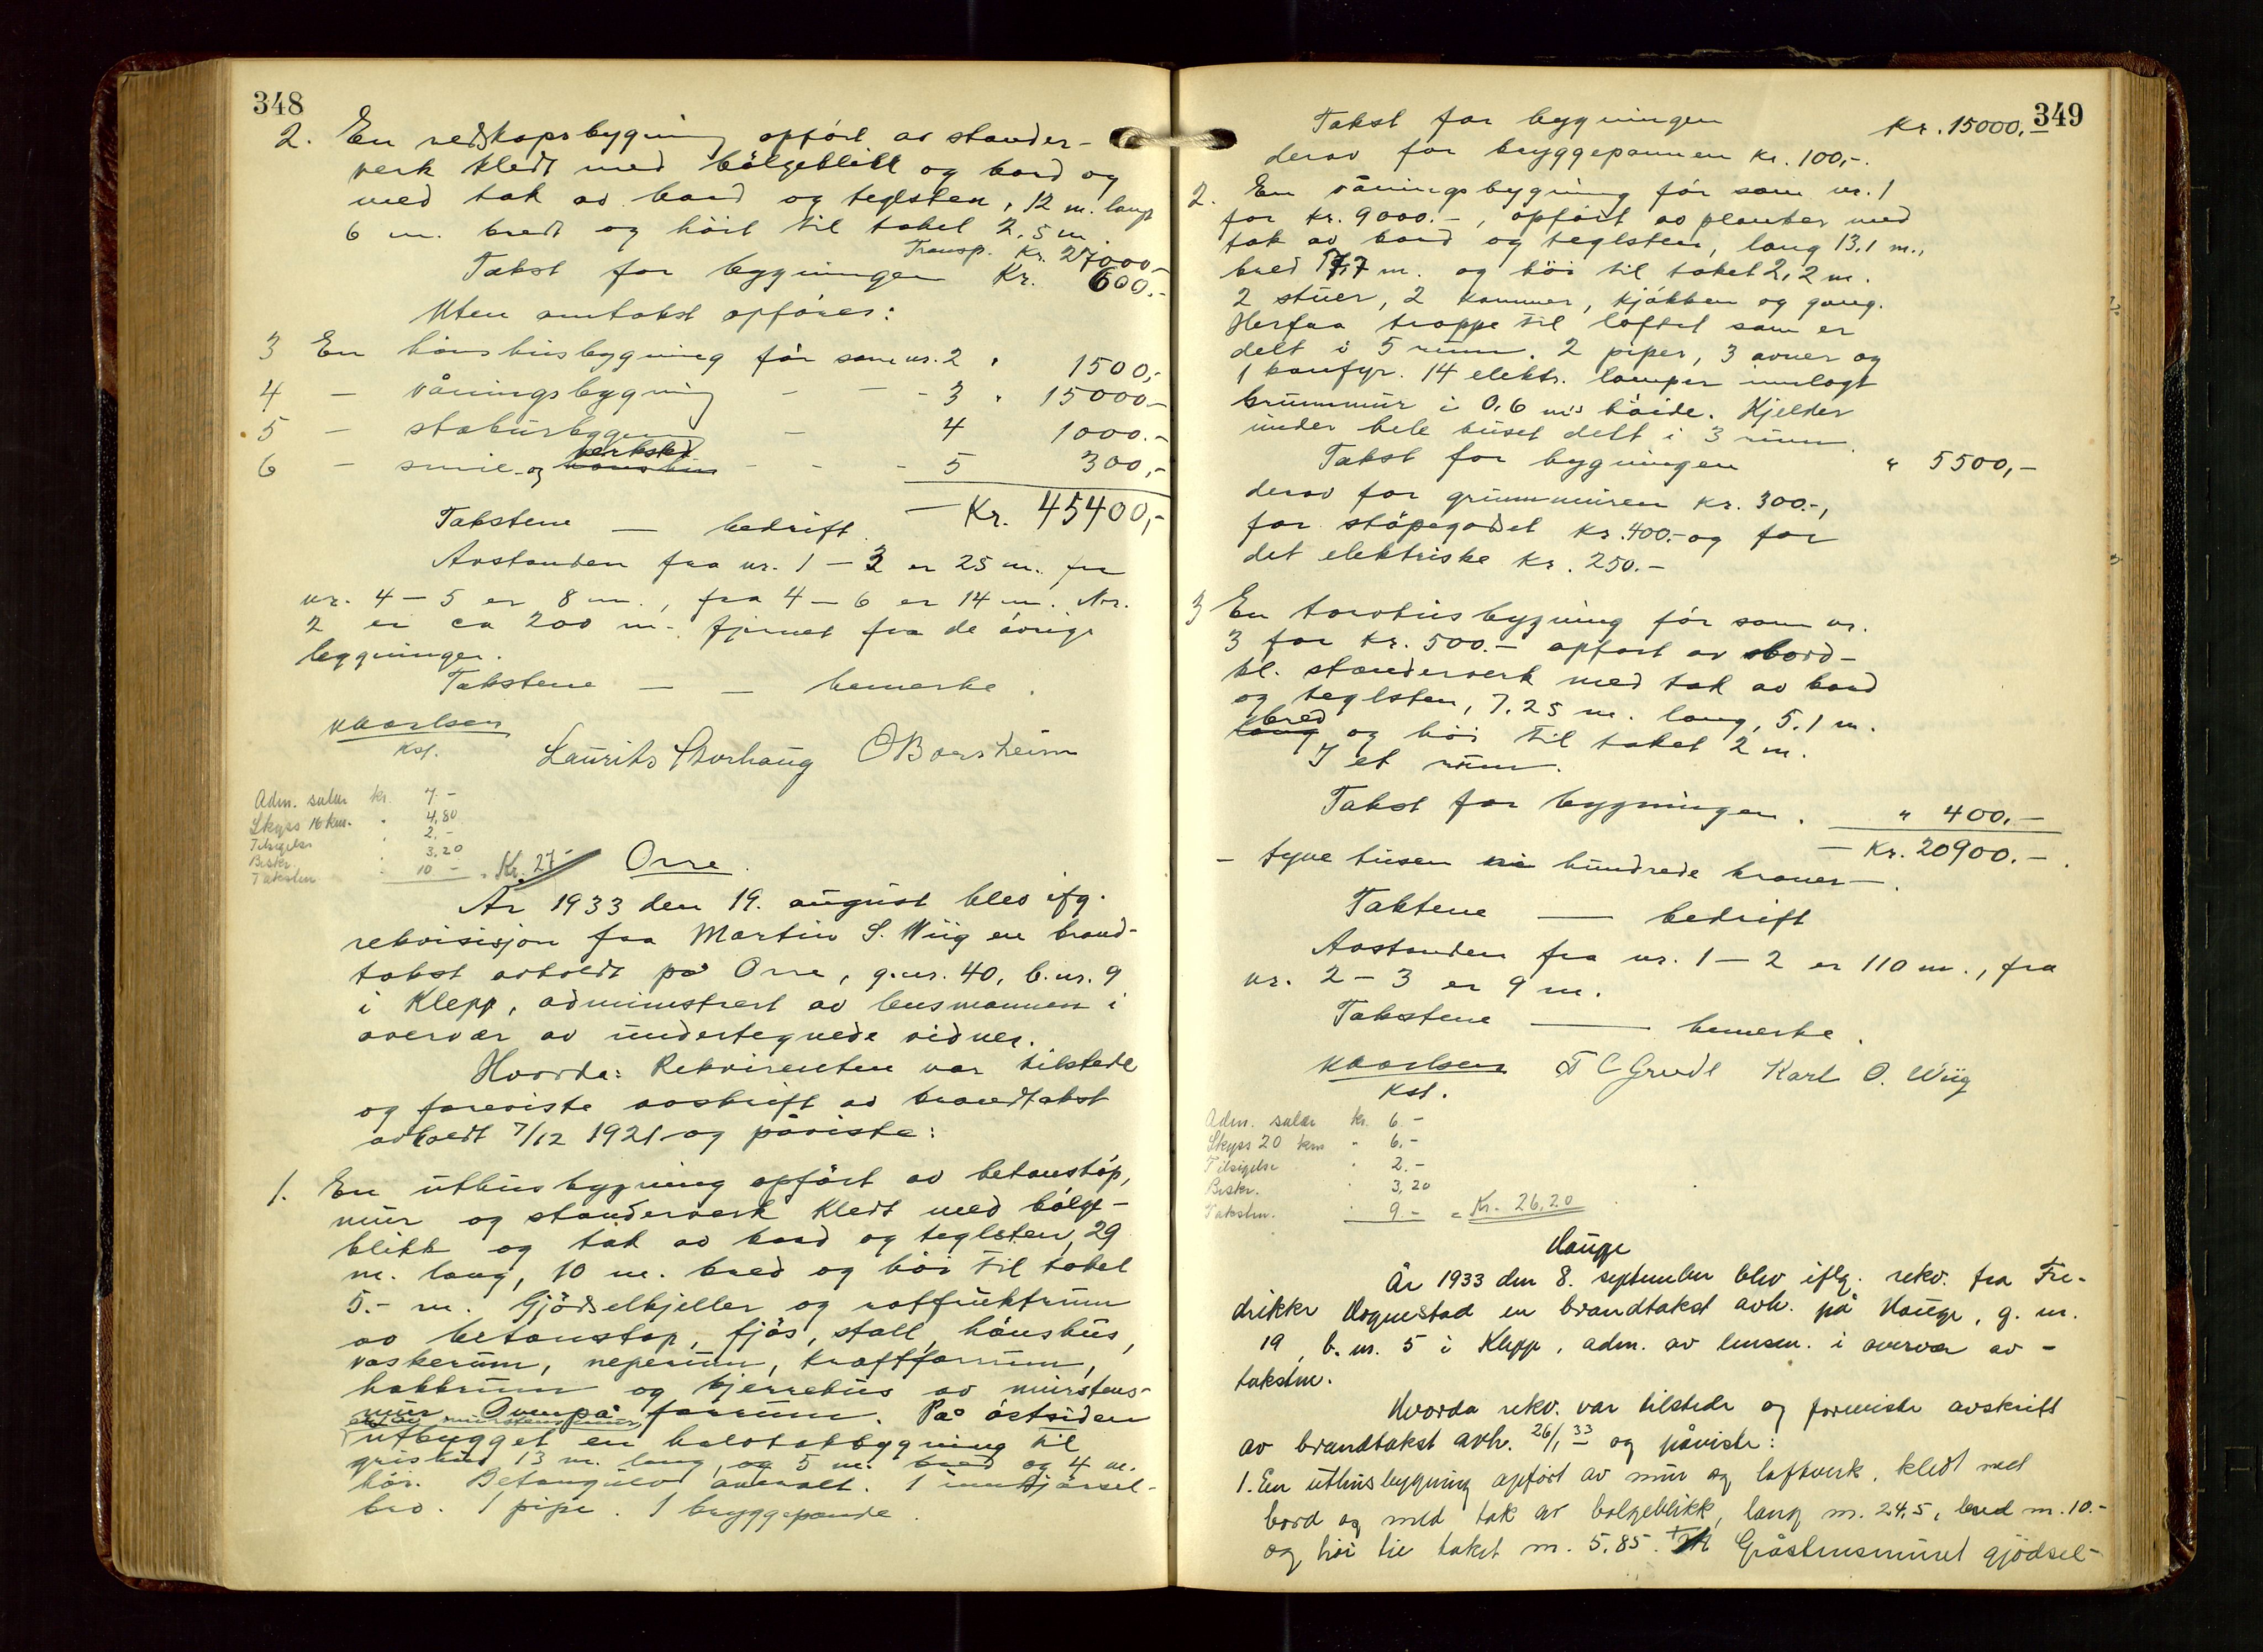 348
2. En redskapsbygning opført av stander-
verk kledt med bølgeblikk og bord og
med tak av bord og teglsten, 12 m. langt
6 m. bredt og høit til taket 2,5 m.
Transp. Kr. 27000.-
Takst for bygningen Kr. 600.-
Uten omtakst opføres:
3 En hønshusbygning før som nr. 2 " 1500,-
4 — våningsbygning — - 3 " 15000.-
5 — stabursbygen — 4 1000.-
6 — smie- og verksted - - - 5 300,-
— Kr. 45400,-
Takstene — bedrift.
Avstanden fra nr. 1 – 3 er 25 m. fra
nr. 4 – 5 er 8 m., fra 4 – 6 er 14 m. Nr.
2 er ca 200 m. fjernet fra de øvrige
bygninger.
Takstene — — bemerke.
Kst. Laurits Storhaug O Borsheim
Adm. salær kr. 7.-
Skyss 16 km. " 4,80
Tilsigelse " 2.-
Beskr. " 3,20
Takstm " 10 - = Kr. 27-
Orre.
År 1933 den 19. august blev ifg.
rekvisisjon fra Martin S. Wiig en brand-
takst avholdt på Orre, g.nr. 40, b.nr. 9
i Klepp, administrert av lensmannen i
overvær av undertegnede vidner.
Hvorda: Rekvirenten var tilstede
og foreviste avskrift av brandtakst
avholdt 7/12 1921 og påviste:
1. En uthusbygning opført av betonstøp,
mur og standerverk kledt med bølge-
blikk og tak av bord og teglsten, 29
m. lang, 10 m. bred og høi til taket
5.- m. Gjødselkjeller og rotfruktrum
av betonstøp, fjøs, stall, hønshus,
vaskerum, neperum, kraftforrum,
hakkrum og kjerrehus av murstens-
mur Ovenpå forrum. På østsiden
er av murstensmur
utbygget en halvtakbygning til
grishus 13 m. lang, og 5 m. bred og 4 m.
høi. Betongulv overalt. 1 innkjørsel-
bro. 1 pipe. 1 bryggepanne.
349
Takst for bygningen Kr. 15000.-
derav for bryggepannen kr. 100,-.
2. En våningsbygning før som nr. 1
for kr. 9000.-, opført av planker med
tak av bord og teglsten, lang 13,1 m.,
bred 7,7 m. og høi til taket 2,2 m.
2 stuer, 2 kammer, kjøkken og gang.
Herfra trappe til loftet som er
delt i 5 rum. 2 piper, 3 ovner og
1 komfyr. 14 elektr. lamper innlagt
Grunnmur i 0,6 m's høide. Kjelder
under hele huset delt i 3 rum.
Takst for bygningen " 5500,-
derav for grunnmuren kr. 300.-,
for støpegodset kr. 400.- og for
det elektriske kr. 250.-
3 En torvhusbygning før som nr.
3 for kr. 500.- opført av bord-
kl. standerverk med tak av bord
og teglsten, 7,25 m. lang, 5,1 m.
bred
lang og høi til taket 2 m.
I et rum.
Takst for bygningen. " 400.-
— Kr. 20900.-.
- tyve tusen ni hundrede kroner —.
Takstene — bedrift
Avstanden fra nr. 1 – 2 er 110 m., fra
nr. 2 – 3 er 9 m.
Takstene — bemerke.
Kst. Karl O. Wiig
Adm. salær kr. 6.-
Skyss 20 km " 6,-
Tilsigelse " 2.-
Beskr. " 3,20
Takstm. " 9.- = Kr. 26,20
Hauge
År 1933 den 8. september blev iflg. rekv. fra Fre-
drikke Hognestad en brandtakst avh. på Hauge, g. nr.
19, b. nr. 5 i Klepp, adm. av lensm. i overvær av -
takstm.
Hvorda rekv. var tilstede og foreviste avskrift
av brandtakst avh. 26/1 33 og påviste:
1. En uthusbygning opført av mur og laftverk, kledt med
bord og med tak av bølgeblikk, lang m. 24,5, bred m. 10.-
og høi til taket m. 5,85. Gråstensmuret gjødsel-